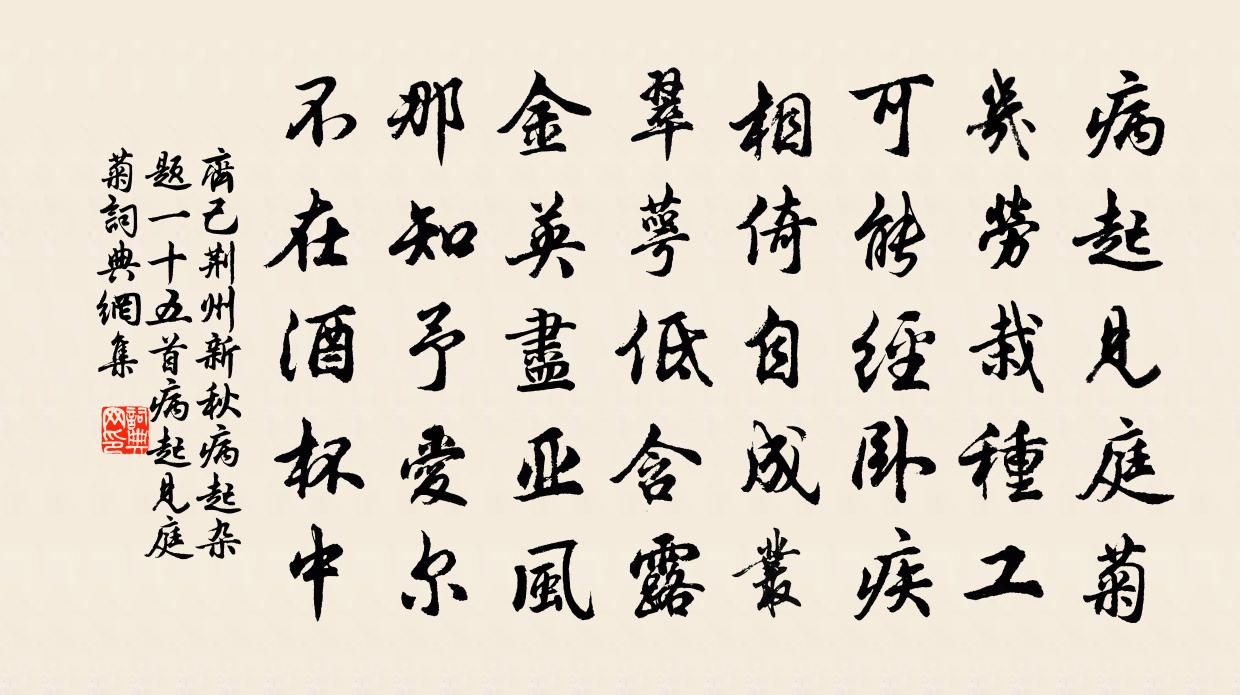 病起見庭菊
幾勞栽種工
可能經卧疾
相倚自成叢
翠萼低含露
金英盡亚風
那知予愛尔
不在酒杯中
齊己荆州新秋病起杂
题一十五首病起見庭
菊詞典網集
詞典
网印